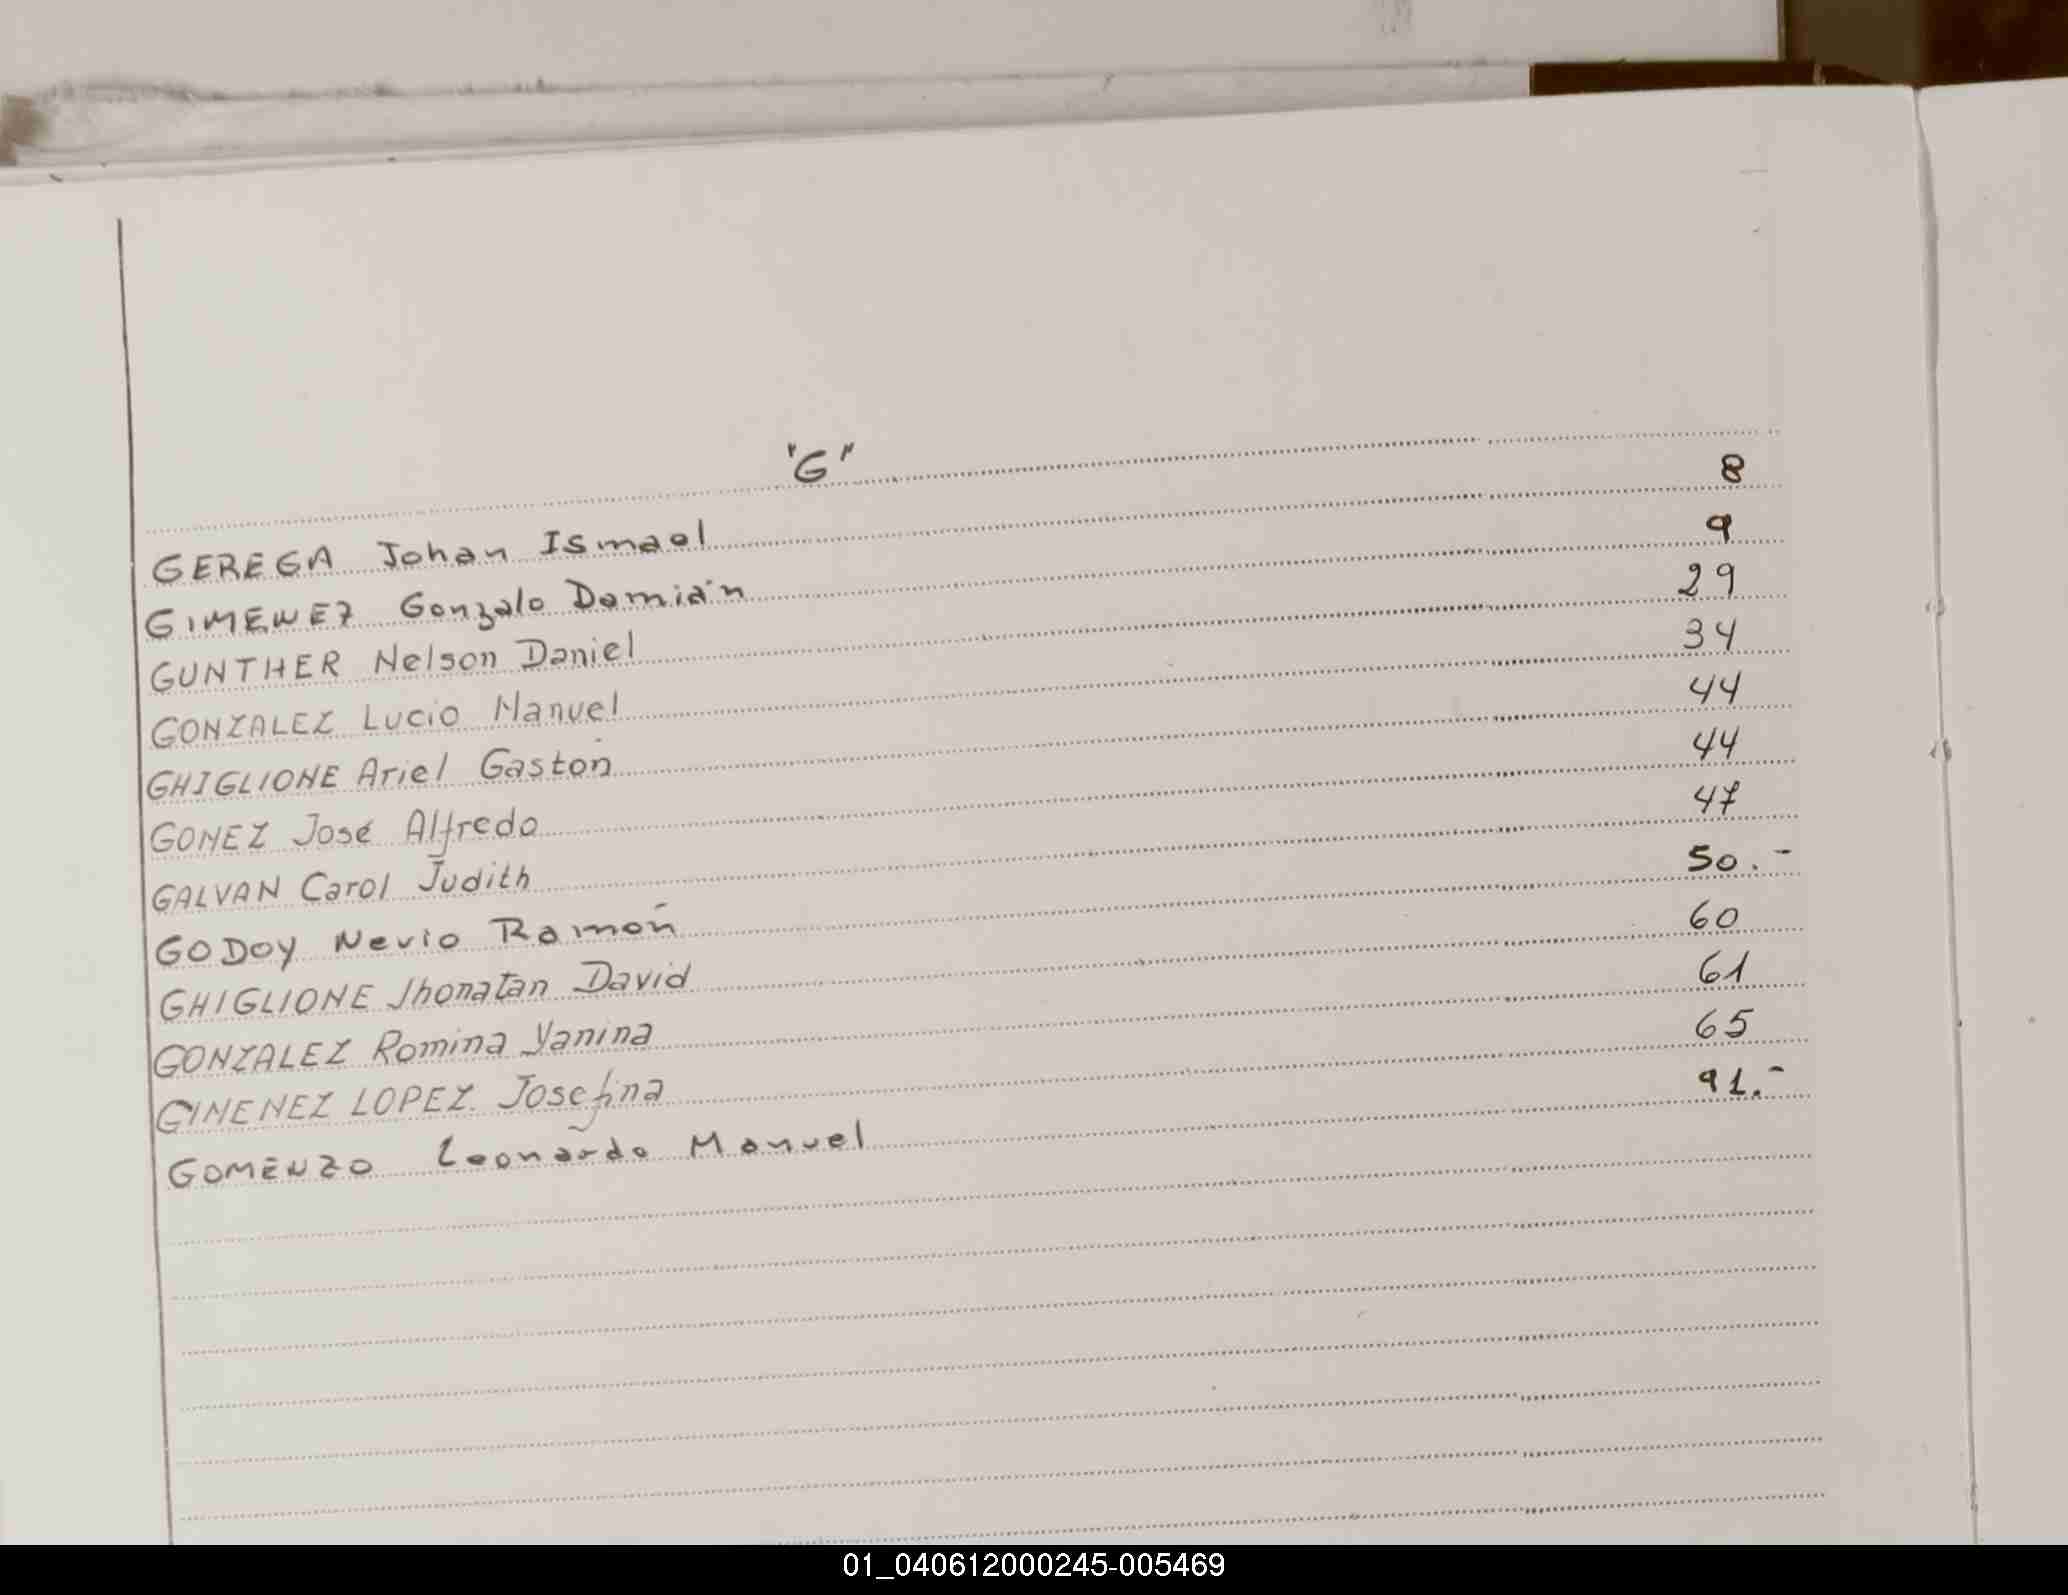 "G"
GEREGA Johan Ismael 8
GIMENEZ Gonzalo Damián 9
GUNTHER Nelson Daniel 29
GONZALEZ Lucio Manuel 34
GHIGLIONE Ariel Gastón 44
GOMEZ José Alfredo 44
GALVAN Carol Judith 47
GODOY Nevio Ramón 50.-
GHIGLIONE Jhonatan David 60
GONZALEZ Romina Yanina 61
GIMENEZ LOPEZ Josefina 65
GOMENZO Leonardo Manuel 91.-
01_040612000245-005469